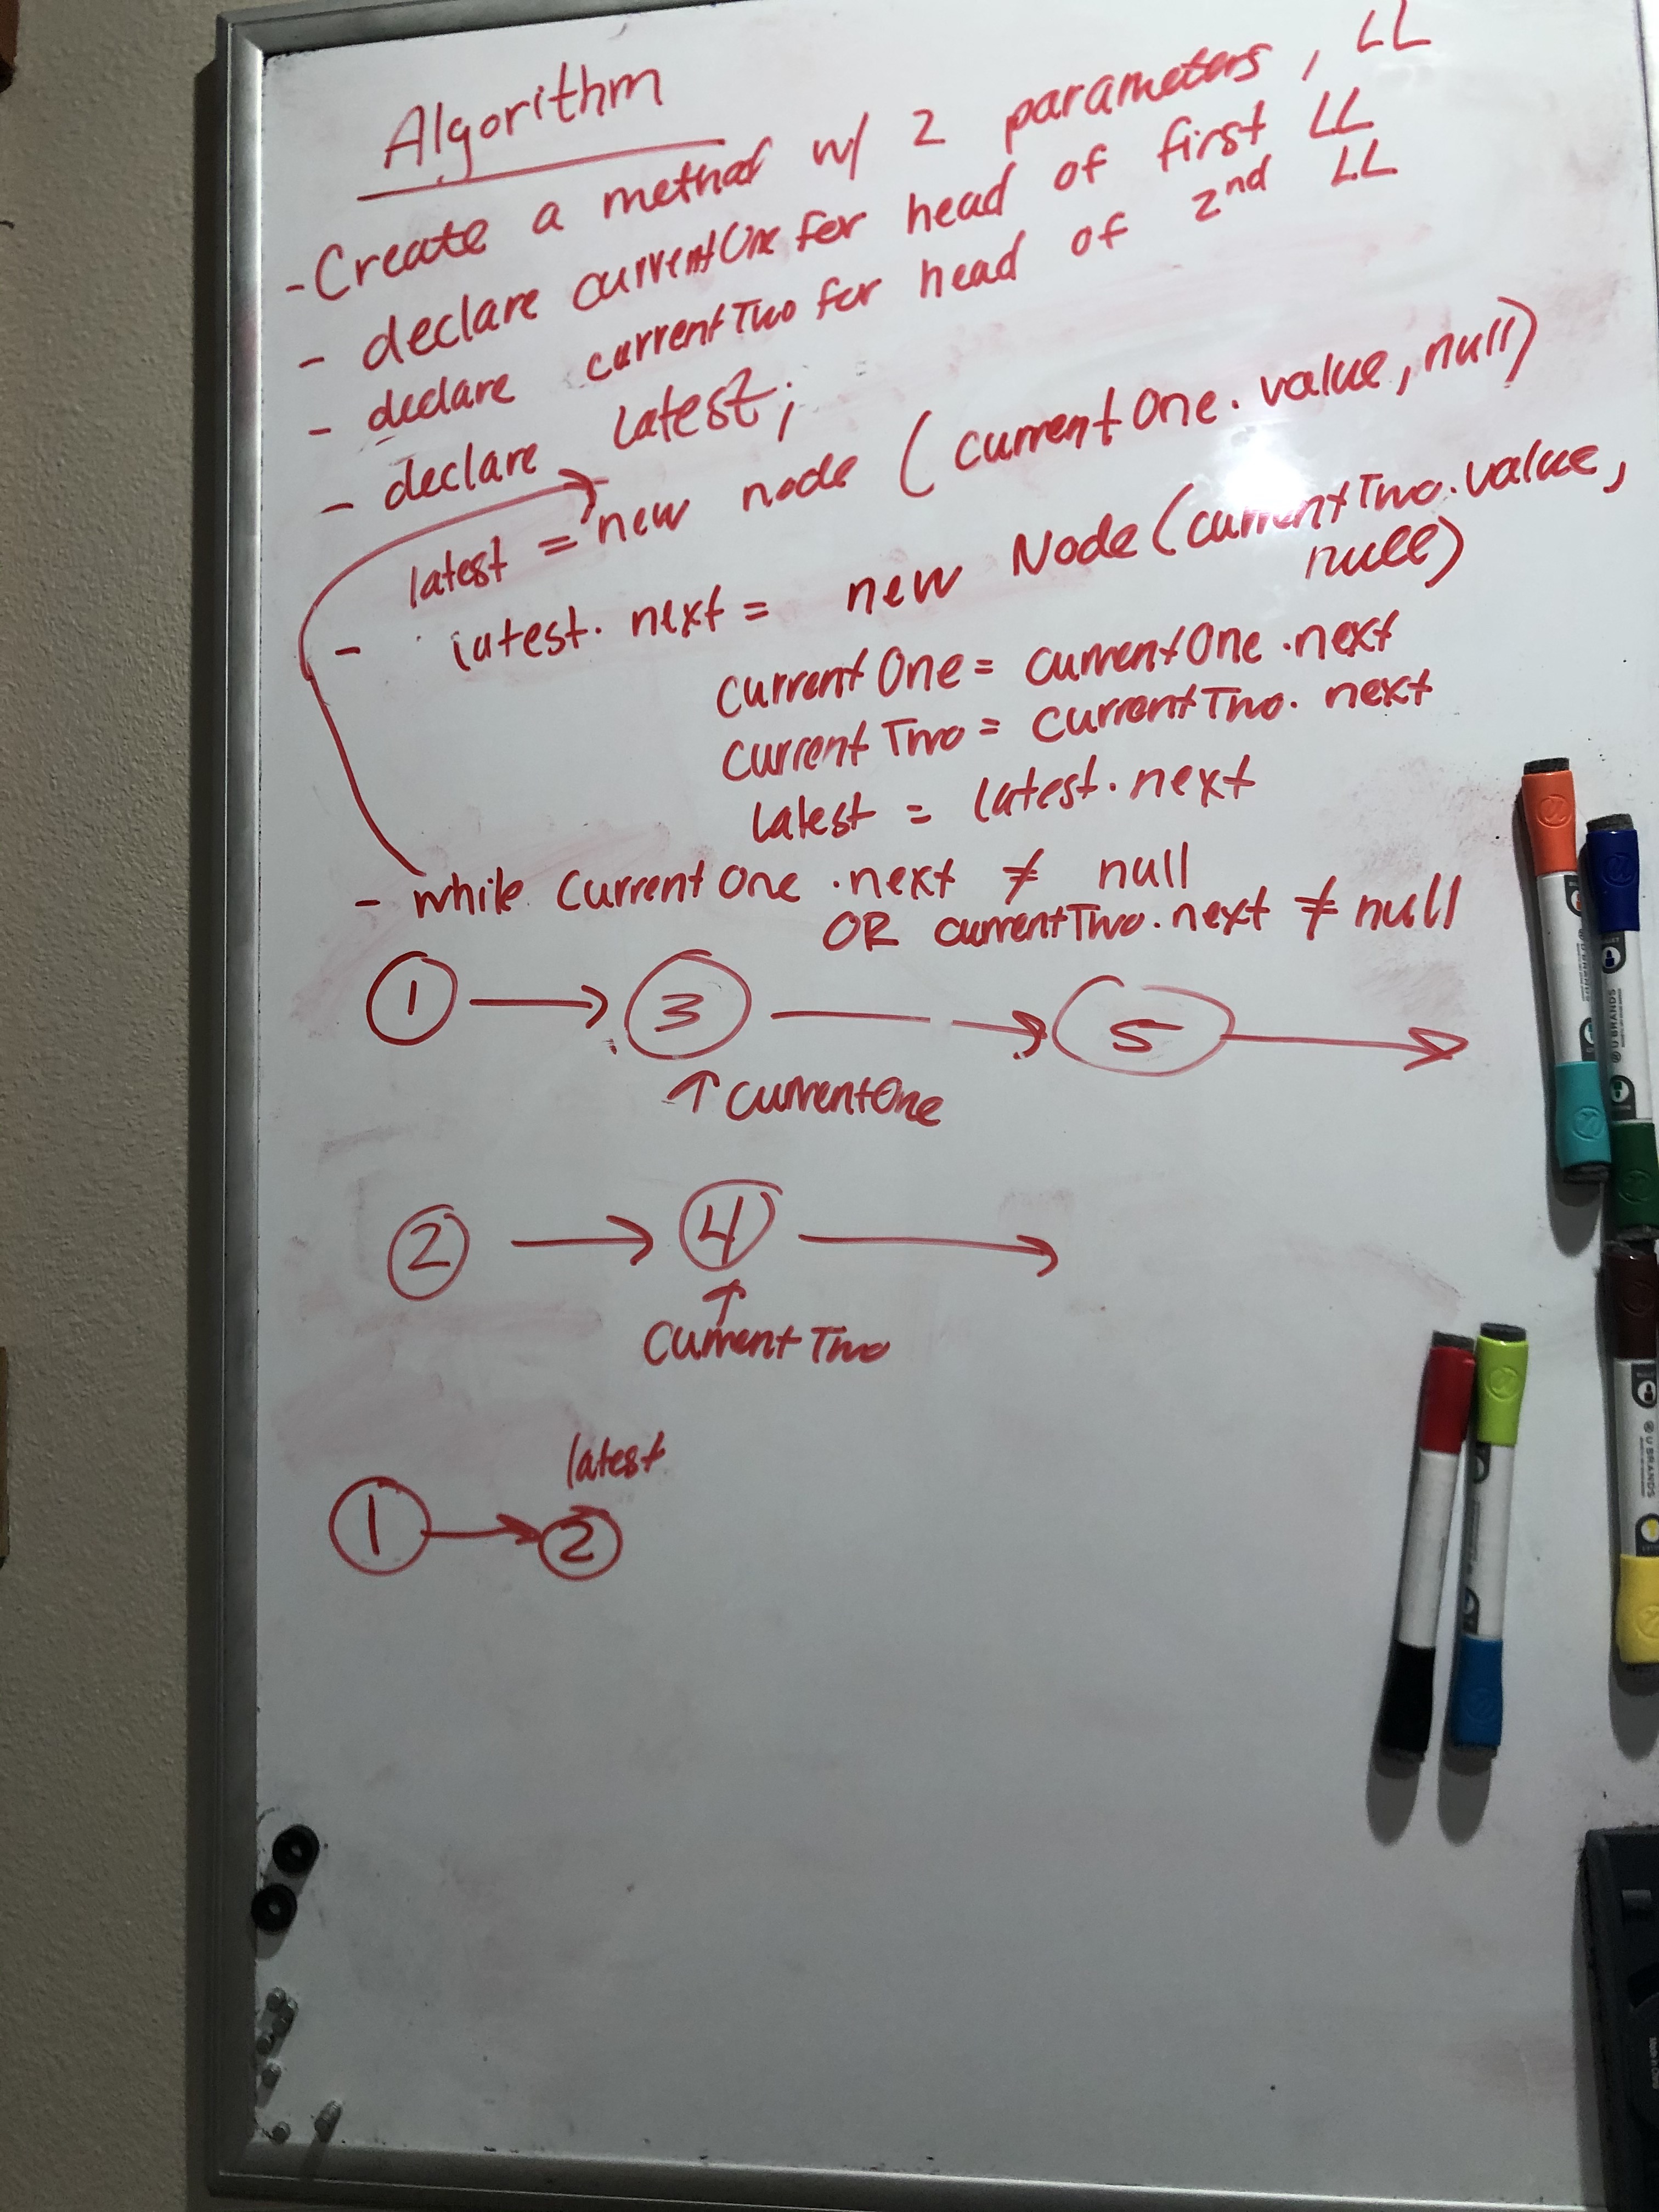 Algorithm
- Create a method w/ 2 parameters, LL
- declare currentOne for head of first LL
- declare currentTwo for head of 2nd LL
- declare latest;
latest = new node (currentOne.value, null)
- latest.next = new Node (currentTwo.value,
null)
currentOne = currentOne.next
currentTwo = currentTwo.next
latest = latest.next
- while currentOne.next ≠ null
OR currentTwo.next ≠ null
1 → 3 → 5 →
↑ currentOne
2 → 4 →
↑
currentTwo
latest
1 → 2
U BRANDS
U BRANDS
U BRANDS